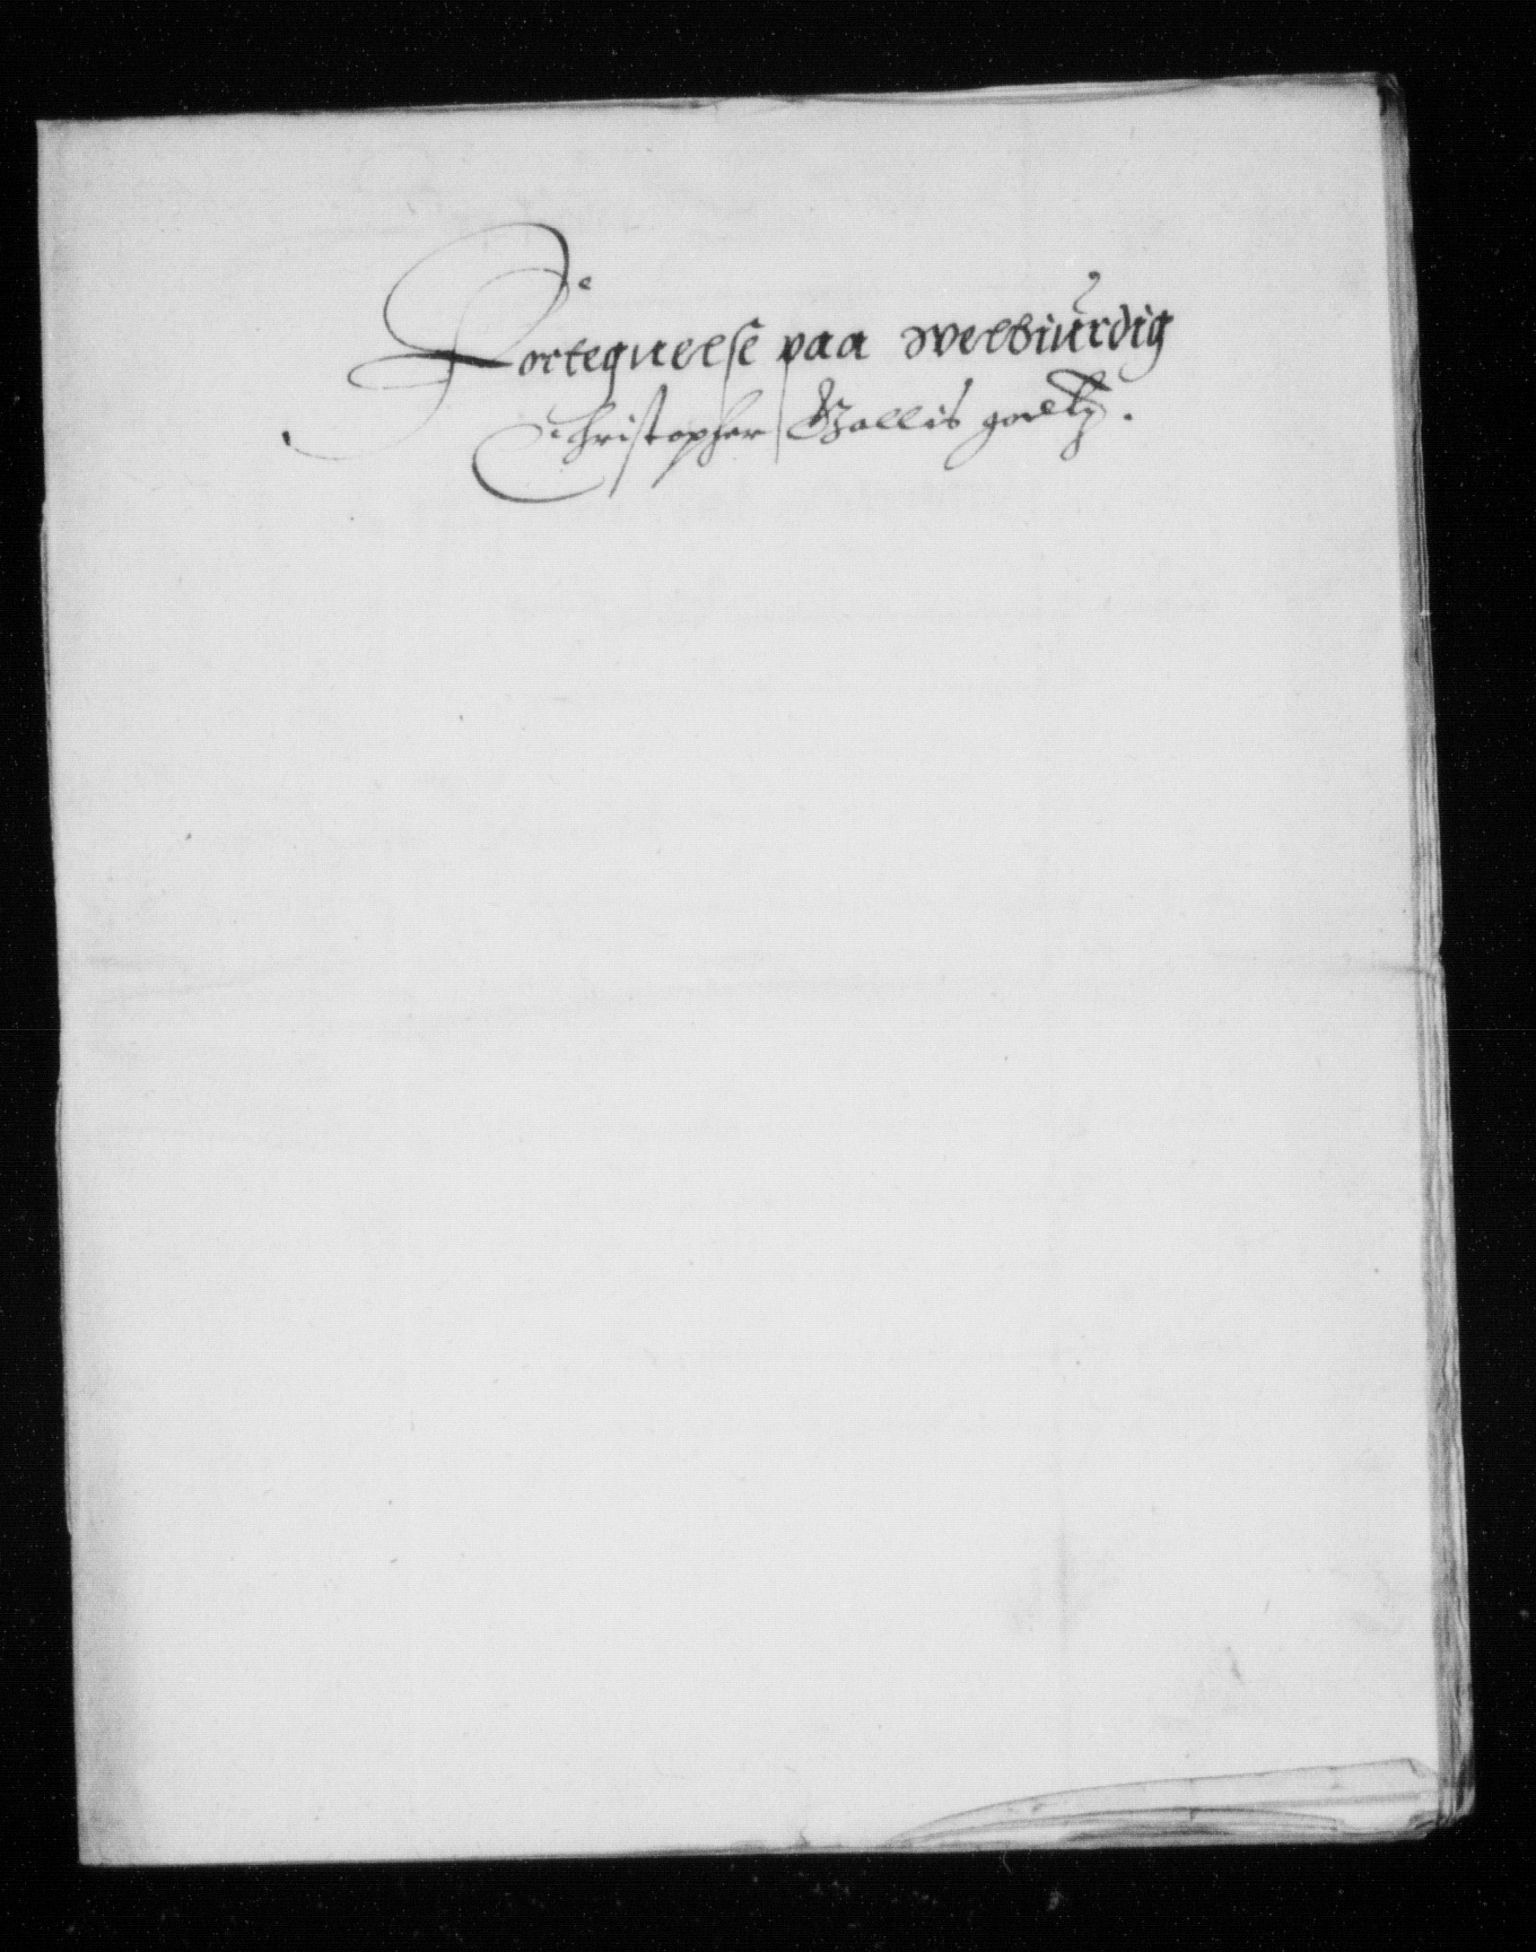 Fortegnelse paa welbiurdig
Christopher Gallis goedtz.